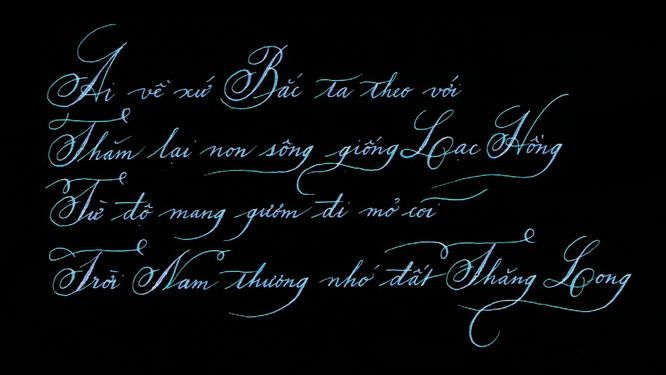 Ai về xứ Bắc ta theo với
Thăm lại non sông giống Lạc Hồng
Từ độ mang gươm đi mở cõi
Trời Nam thương nhớ đất Thăng Long